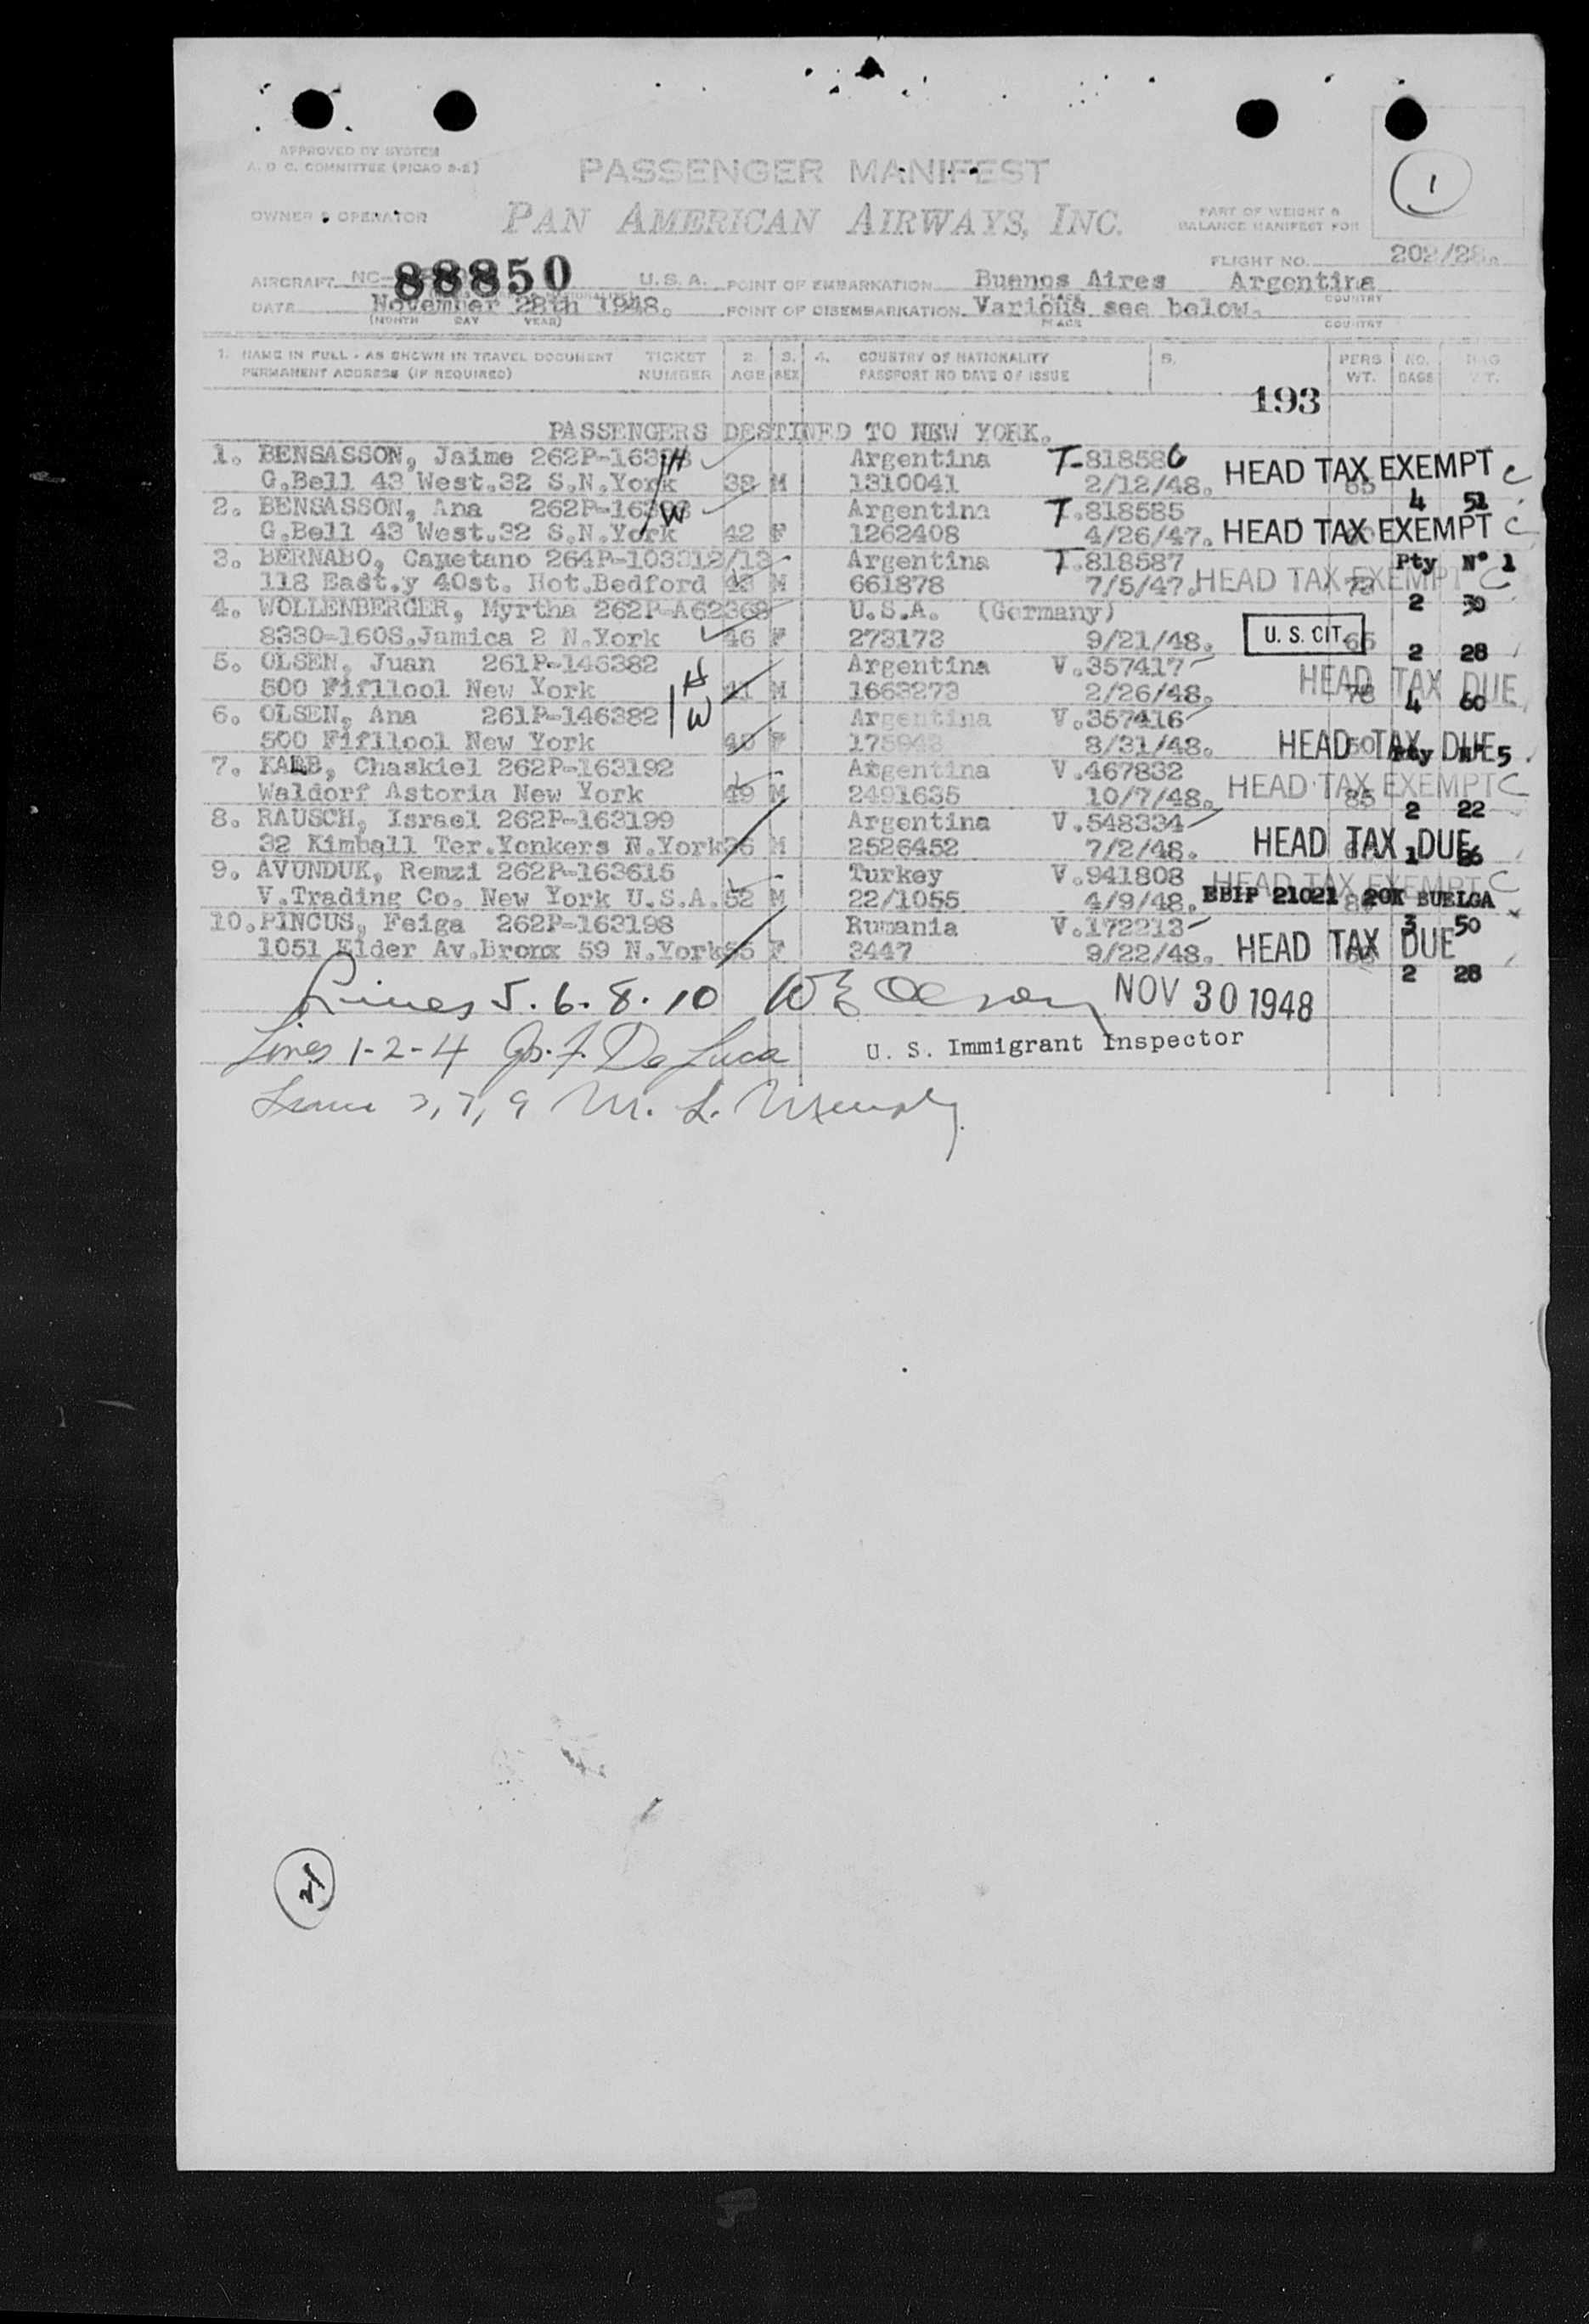 1
APPROVED BY SYSTEM
A. O. C. COMMITTEE (PICAO 2-2)
PASSENGER MANIFEST
OWNER & OPERATOR PAN AMERICAN AIRWAYS, INC. PART OF WEIGHT &
BALANCE MANIFEST FOR
FLIGHT NO. 202/28.
AIRCRAFT NC-88850 U.S.A. POINT OF EMBARKATION Buenos Aires Argentina
DATE November 28th 1948. POINT OF DISEMBARKATION Various see below.
(MONTH DAY YEAR) PLACE COUNTRY
1. NAME IN FULL - AS SHOWN IN TRAVEL DOCUMENT TICKET 2. 3. 4. COUNTRY OF NATIONALITY 5. PERS NO. BAG
PERMANENT ADDRESS (IF REQUIRED) NUMBER AGE SEX PASSPORT NO DATE OF ISSUE WT. BAGS WT.
193
PASSENGERS DESTINED TO NEW YORK.
1. BENSASSON, Jaime H Argentina T-818586 HEAD TAX EXEMPT C
G.Bell 43 West.32 S.N.York 38 M 1310041 2/12/48. 4 51
2. BENSASSON, Ana W Argentina T.818585
G.Bell 43 West.32 S.N.York 42 F 1262408 4/26/47. HEAD TAX EXEMPT C
3. BERNABO, Cayetano 264P-103312/13 Argentina T.818587 Pty Nº 1
118 East.y 40st. Hot.Bedford M 661878 7/5/47. HEAD TAX EXEMPT C
4. WOLLENBERGER, Myrtha 262P-A62369 U.S.A. (Germany) 2 30
8330-160S.Jamica 2 N.York 46 F 273173 9/21/48. U. S. CIT. 2 28
5. OLSEN, Juan 261P-146382 H Argentina V.357417
500 Fifllool New York 41 M 1663273 2/26/48. HEAD TAX DUE 78 4 60
6. OLSEN, Ana 261P-146382 W Argentina V.357416
500 Fifilool New York F 8/31/48. HEAD TAX DUE Pty Nº 5
7. KALB, Chaskiel 262P-163192 Argentina V.467832
Waldorf Astoria New York 49 M 2491635 10/7/48. HEAD TAX EXEMPT C 85 2 22
8. RAUSCH, Israel 262P-163199 Argentina V.548334
32 Kimball Ter.Yonkers N.York M 2526452 7/2/48. HEAD TAX DUE 1
9. AVUNDUK, Remzi 262P-163615 Turkey V.941808 HEAD TAX EXEMPT C
V.Trading Co. New York U.S.A. 52 M 22/1055 4/9/48. EBIP 21021 20K BUELGA
10. PINCUS, Feiga 262P-163198 Rumania V.172213 3 50
1051 Elder Av.Bronx 59 N.York F 3447 9/22/48. HEAD TAX DUE
2 28
Lines 5. 6. 8. 10 W E Olson NOV 30 1948
Lines 1-2-4 De Luca U. S. Immigrant Inspector
M. L.
21